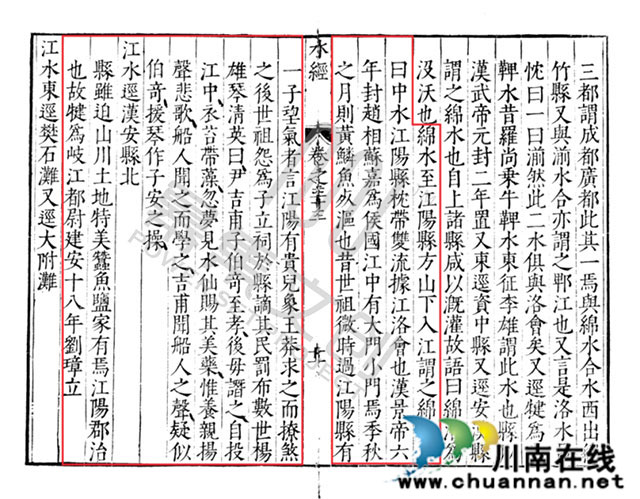 三都謂成都廣都此其一焉與綿水合水西出
竹縣又與湔水合亦謂之郫江也又言是洛水
忱曰一曰湔然此二水俱與洛會矣又逕犍爲
鞞水昔羅尚乗牛鞞水東征李雄謂此水也縣
漢武帝元封二年置又東逕資中縣又逕安漢縣
謂之綿水也自上諸縣咸以溉灌故語曰綿爲
沒沃也綿水至江陽縣方山下入江謂之綿
曰中水江陽縣枕帶雙流據江洛會也漢景帝六
年封趙相蘇嘉爲侯國江中有大門小門焉季秋
之月則黃鱗魚死漚也昔世祖微時過江陽縣有
水經 卷之三十三
一子望氣者言江陽有貴兒象王莽求之而獠煞
之後世祖怨爲子立祠於縣謫其民罰布數世揚
雄琴清英曰尹吉甫子伯奇至孝後母譖之自投
江中衣苔帶藻忽夢見水仙賜其美藥惟養親揚
聲悲歌船人聞之而學之吉甫聞船人之聲疑似
伯奇援琴作子安之操
江水逕漢安縣北
縣雖迫山川土地特美蠶魚鹽家有焉江陽郡治
也故犍爲岐江都尉建安十八年劉璋立
江水東逕樊石灘又逕大附灘
川南在线
www.chuannan.net